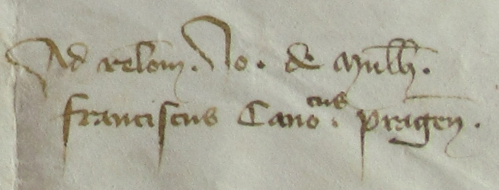 Ad relom. Jo. de Mulh.
Franciscus Canocus. pragen.